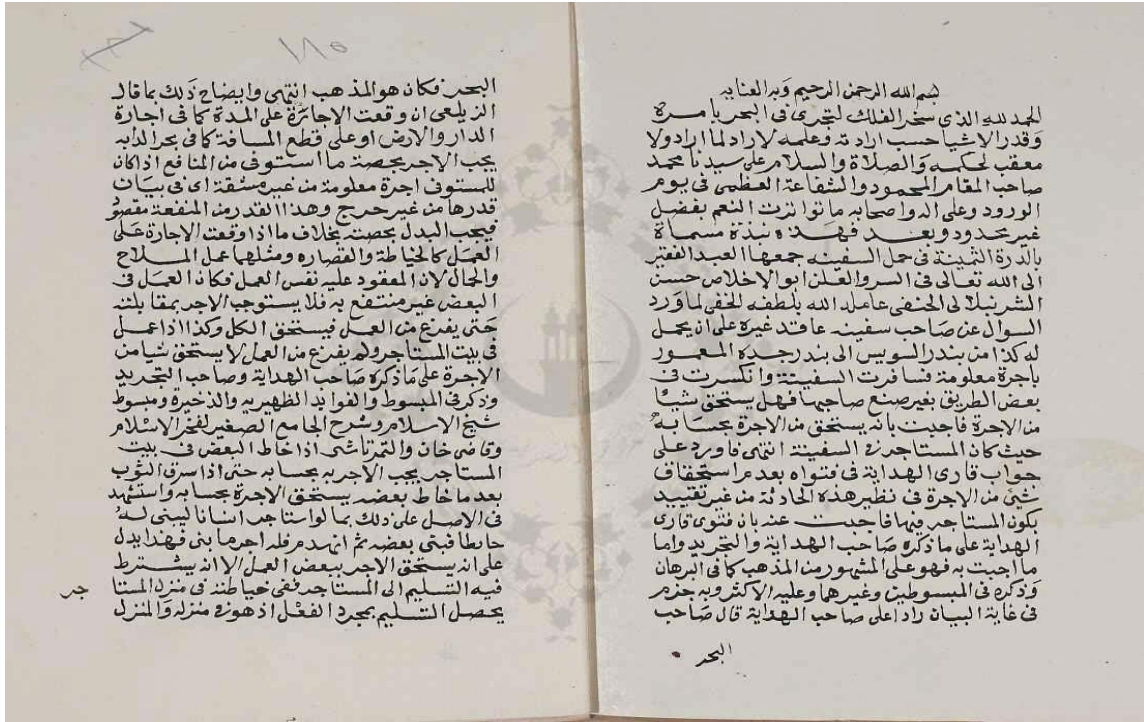 بسم الله الرحمن الرحيم وبه العنايه
الحمد لله الذي سخر الفلك لتجري في البحر بامره
وقدر الاشيا حسب ارادته وعلمه لا راد لما اراد ولا
معقب لحكمه والصلاة والسلام على سيدنا محمد
صاحب المقام المحمود والشفاعة العظمى في يوم
الورود وعلى اله واصحابه ما تواترت النعم بفضل
غير محدود وبعد فهذه نبذة مسماة
بالدرة الثمينة في حمل السفينه جمعها العبد الفقير
الى الله تعالى في السر والعلن ابو الاخلاص حسن
الشرنبلالي الحنفي عامله الله بلطفه الخفي لما ورد
السوال عن صاحب سفينه عاقد غيره على ان يحمل
له كذا من بندر السويس الى بندر جده المعمور
باجرة معلومة فسافرت السفينة وانكسرت في
بعض الطريق بغير صنع صاحبها فهل يستحق شيا
من الاجرة فاجبت بانه يستحق من الاجرة بحسابه
حيث كان المستاجر في السفينة انتهى فاورد على
جواب قارى الهداية في فتواه بعدم استحقاق
شي من الاجرة في نظير هذه الحادثة من غير تقييد
بكون المستاجر فيها فاجبت عنه بان فتوى قارى
الهداية على ما ذكره صاحب الهداية والتجريد واما
ما اجبت به فهو على المشهور من المذهب كما في البرهان
وذكره في المبسوطين وغيرهما وعليه الاكثر وبه جزم
في غاية البيان رادا على صاحب الهداية قال صاحب
البحر
١٨٥
البحر فكان هو المذهب انتهى وايضاح ذلك بما قال
الزيلعي ان وقعت الاجارة على المدة كما في اجارة
الدار والارض او على قطع المسافة كما في بحر الدابه
يجب الاجر بحصة ما استوفى من المنافع اذا كان
للمستوفى اجرة معلومة من غير مشقة اى في بيان
قدرها من غير حرج وهذا القدر من المنفعة مقصود
فيجب البدل بحصته بخلاف ما اذا وقعت الاجارة على
العمل كالخياطة والقصاره ومثلهما عمل الملاح
والحمال لان المعقود عليه نفس العمل فكان العمل في
البعض غير منتفع به فلا يستوجب الاجر بمقابلته
حتى يفرغ من العمل فيستحق الكل وكذا اذا عمل
في بيت المستاجر ولم يفرغ من العمل لا يستحق شيا من
الاجرة على ما ذكره صاحب الهداية وصاحب التجريد
وذكر في المبسوط والفوايد الظهيريه والذخيرة ومبسوط
شيخ الاسلام وشرح الجامع الصغير لفخر الاسلام
وقاضي خان والتمرتاشى اذا خاط البعض في بيت
المستاجر يجب الاجر به بحسابه حتى اذا سرق الثوب
بعد ما خاط بعضه يستحق الاجرة بحسابه واستشهد
في الاصل على ذلك بما لو استاجر انسانا ليبنى له
حائطا فبنى بعضه ثم انهدم فله اجر ما بنى فهذا يدل
على انه يستحق الاجر ببعض العمل الا انه يشترط
فيه التسليم الى المستاجر ففى خياطته في منزل المستا
جر
يحصل التسليم بمجرد الفعل اذ هو في منزله والمنزل